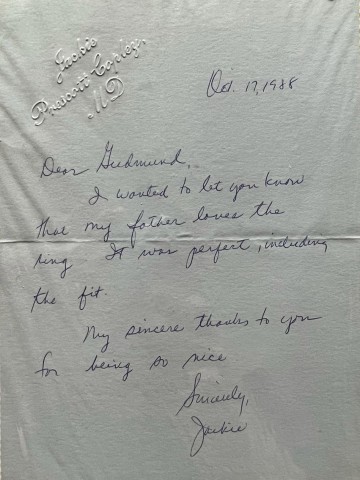 Jackie
Prescott
MD
Oct. 17, 1988
Dear Gudmund,
I wanted to let you know
that my father loves the
ring. It was perfect, including
the fit.
My sincere thanks to you
for being so nice
Sincerely,
Jackie